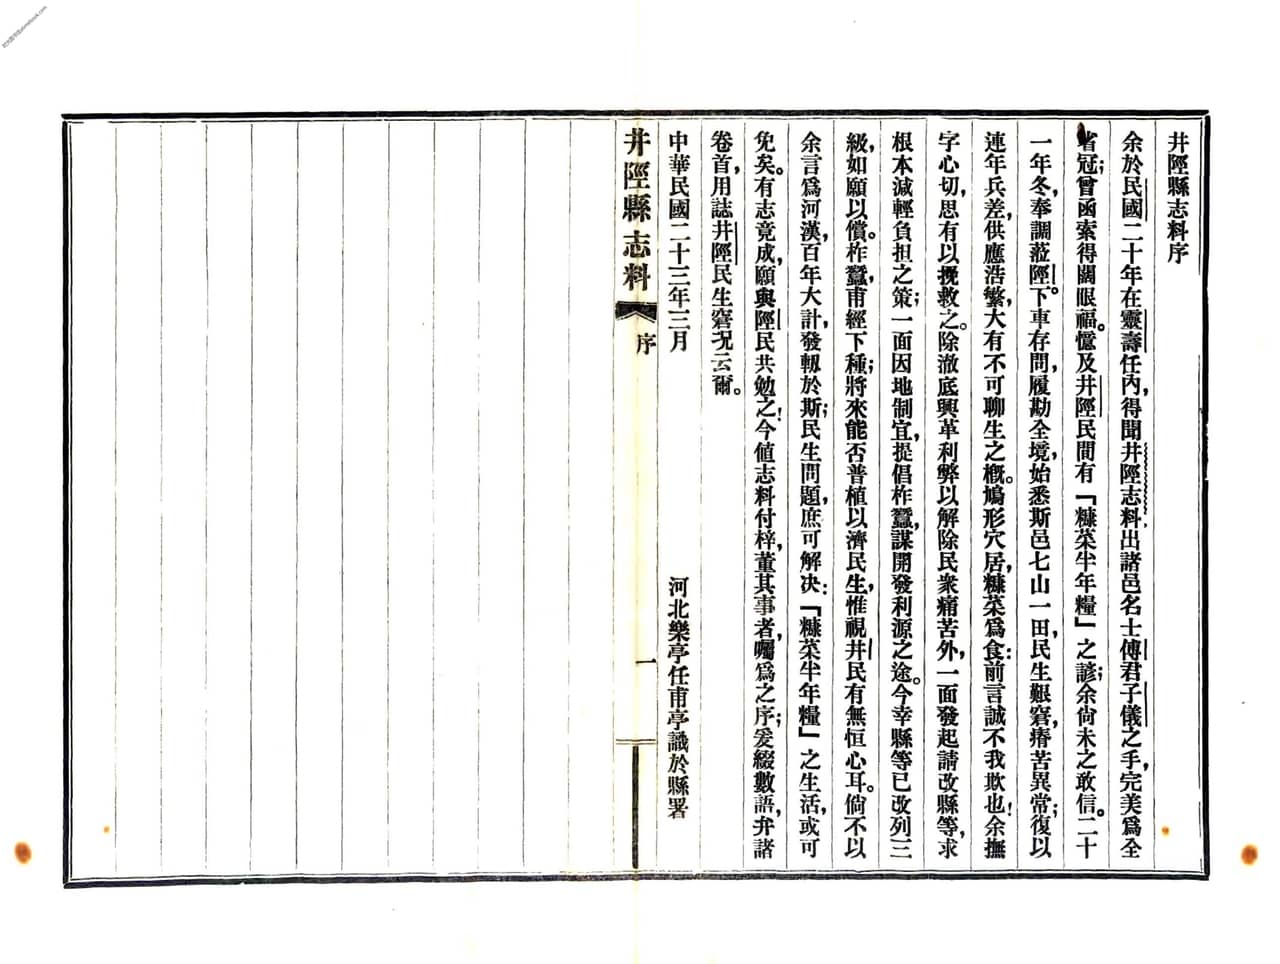 井陘縣志料序
余於民國二十年在靈壽任內，得聞井陘志料出諸邑名士傅君子儀之手，完美爲全
省冠；曾函索得闊眼福。憶及井陘民間有「糠菜半年糧」之諺；余尙未之敢信。二十
一年冬，奉調蒞陘。下車存問，履勘全境，始悉斯邑七山一田，民生艱窘，瘠苦異常；復以
連年兵差，供應浩繁，大有不可聊生之槪。鳩形穴居，糠菜爲食：前言誠不我欺也！余撫
字心切，思有以挽救之。除澈底興革利弊以解除民衆痛苦外，一面發起請改縣等，求
根本減輕負担之策；一面因地制宜，提倡柞蠶，謀開發利源之途。今幸縣等已改列三
級，如願以償。柞蠶，甫經下種；將來能否普植以濟民生，惟視井民有無恒心耳。倘不以
余言爲河漢，百年大計，發軔於斯；民生問題，庶可解决：「糠菜半年糧」之生活，或可
免矣。有志竟成，願與陘民共勉之！今値志料付梓，董其事者，囑爲之序；爰綴數語，弁諸
卷首，用誌井陘民生窘况云爾。
中華民國二十三年三月
河北樂亭任甫亭識於縣署
井陘縣志料
序
一